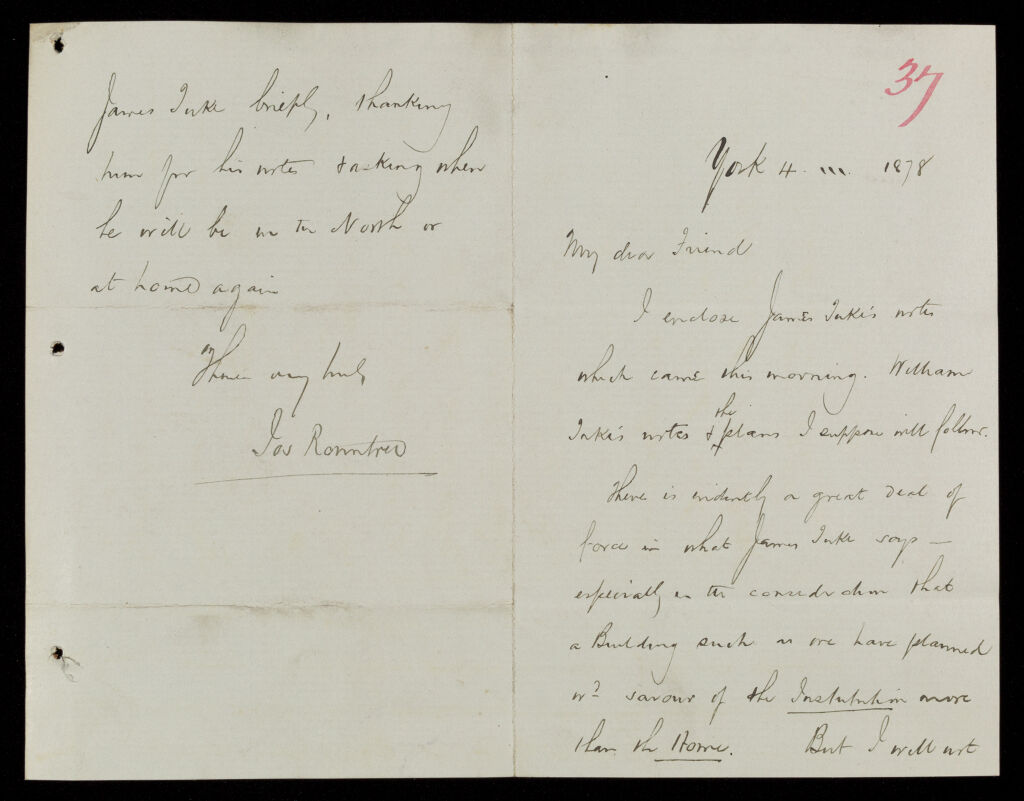 37
York 4. III. 1878
My dear Friend
I enclose James Tuke's notes
which came this morning. William
Tuke's notes & the plans I suppose will follow.
There is evidently a great deal of
force in what James Tuke says —
especially in the consideration that
a Building such as we have planned
wd savour of the Institution more
than the Home. But I will not
James Tuke briefly, thanking
him for his notes & asking when
he will be in the North or
at home again
Thine very truly
Jos Rowntree